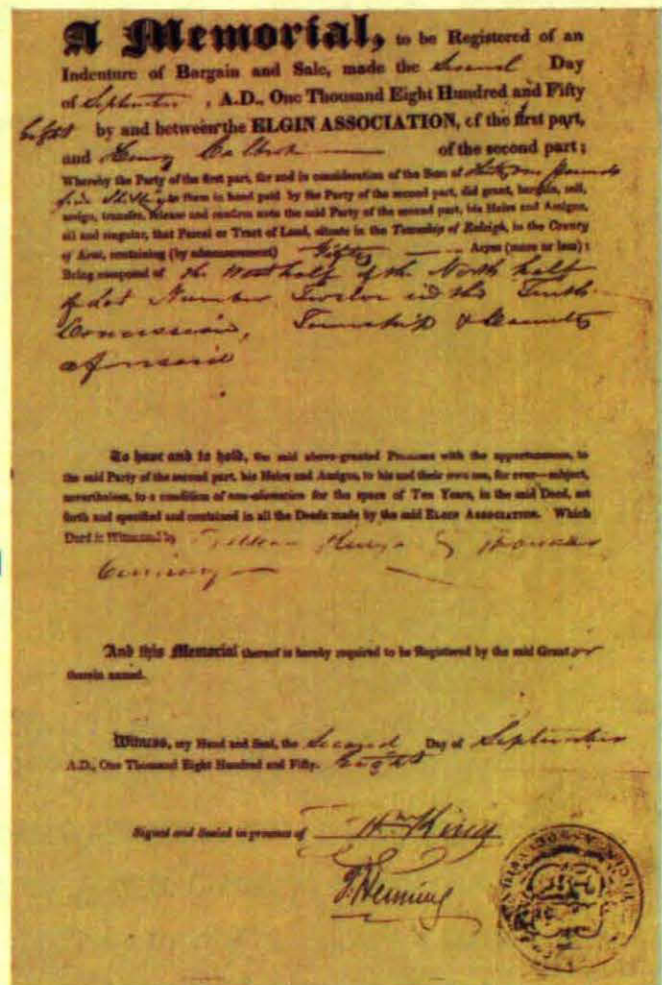 A Memorial, to be Registered of an
Indenture of Bargain and Sale, made the Second Day
of September, A.D., One Thousand Eight Hundred and Fifty
eight by and between the ELGIN ASSOCIATION, of the first part,
and Henry of the second part;
Whereby the Party of the first part, for and in consideration of the Sum of Thirty One Pounds
five Shillings to them in hand paid by the Party of the second part, did grant, bargain, sell,
assign, transfer, release and confirm unto the said Party of the second part, his Heirs and Assigns,
all and singular, that Parcel or Tract of Land, situate in the Township of Raleigh, in the County
of Kent, containing (by admeasurement) Fifty Acres (more or less):
Being composed of the West half of the North half
of Lot Number Twelve in the Tenth
Concession, Township & County
aforesaid
To have and to hold, the said above-granted Premises with the appurtenances, to
the said Party of the second part, his Heirs and Assigns, to his and their own use, for ever—subject,
nevertheless, to a condition of non-alienation for the space of Ten Years, in the said Deed, set
forth and specified and contained in all the Deeds made by the said ELGIN ASSOCIATION. Which
Deed is Witnessed by
And this Memorial thereof is hereby required to be Registered by the said Grantor
therein named.
Witness, my Hand and Seal, the Second Day of September
A.D., One Thousand Eight Hundred and Fifty. eight
Signed and Sealed in presence of Wm King